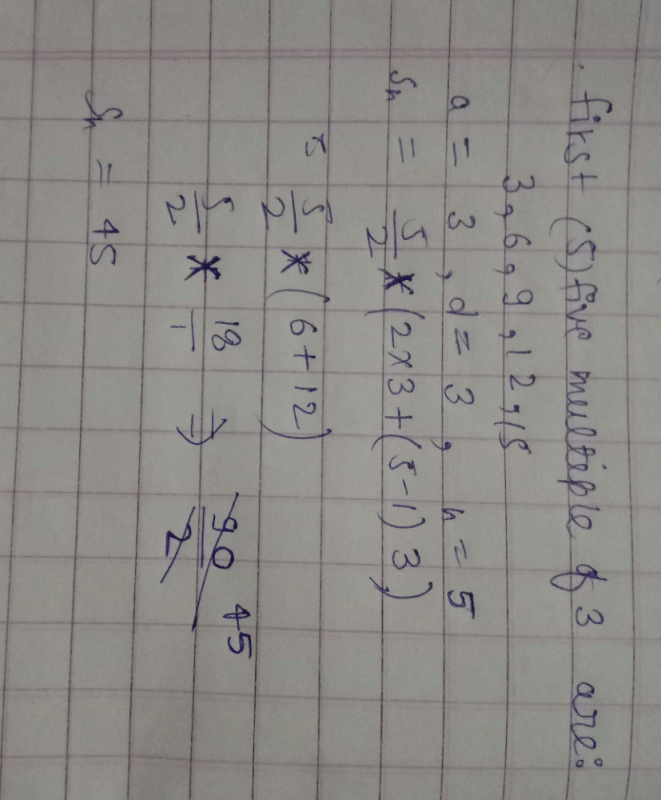 . first (5) five multiple of 3 are:
3, 6, 9, 12, 15
a = 3, d = 3, n = 5
Sn = 5/2 * (2×3+(5-1)3)
= 5/2 * (6+12)
5/2 * 18/1 ⇒ 90/2 45
Sn = 45